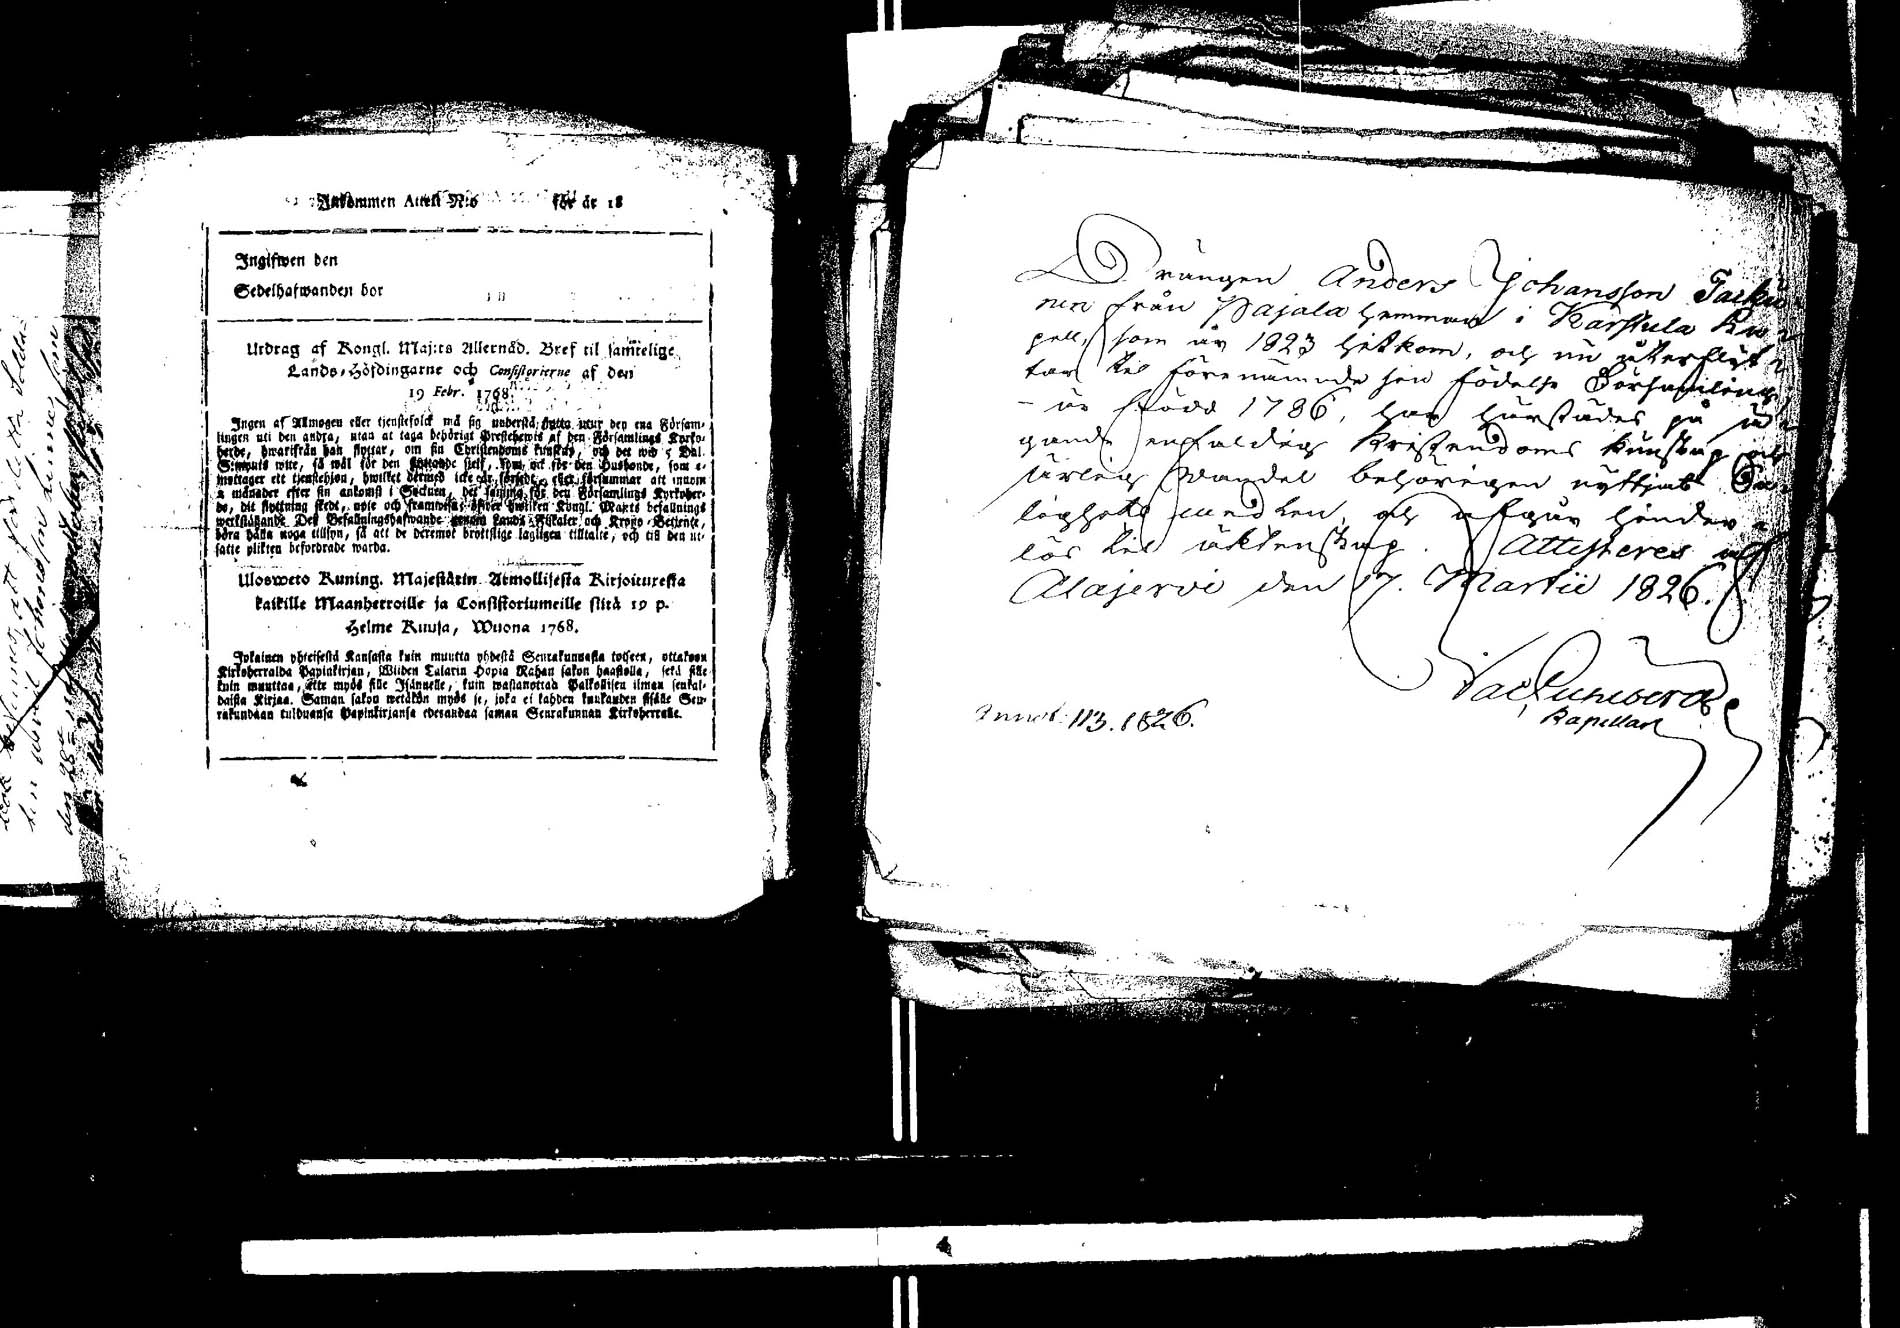 Inkommen Attest N:o för år 18
Ingifwen den
Sedelhafwanden bor
Utdrag af Kongl. Maj:ts Allernåd. Bref til samtelige
Lands-Höfdingarne och Consistorierne af den
19 Febr. 1768.
Ingen af Almogen eller tjenstefolck må sig understå flytta utur den ena Försam-
lingen uti den andra, utan at taga behörigt Prestebewis af den Församlings Kyrko-
herde, hwarifrån han flyttar, om sin Christendoms kunskap, och det wid 5 Dal.
S:mynts wite, så wäl för den flyttande sjelf, som ock för den Husbonde, som e-
mottager ett tjenstehjon, hwilket dermed icke är försedt, eller försummar att innom
2 månader efter sin ankomst i Socknen, det samma för den Församlings Kyrkoher-
de, dit flyttning skedt, upte och framwisa; öfwer hwilken Kongl. Maj:ts befallnings
werkställande Deß Befallningshafwande genom Lands-Fiskaler och Krono-Betjente,
böra hålla noga tillsyn, så att de deremot brottslige lagligen tilltalte, och till den ut-
satte plikten befordrade warda.
Uloswето Kuning. Majestätin Armollisesta Kirjoituxesta
kaikille Maanherroille ja Consistoriumeille siitä 19 p.
Helme Kuusa, Wuona 1768.
Jokainen yhteisestä Kansasta kuin muutta yhdestä Seurakunnasta toiseen, ottakoon
Kirkoherralda Papinkirjan, Wiiden Talarin Hopia Rahan sakon haastolla, sekä sille
kuin muuttaa, ette myös sille Isännelle, kuin wastanottaa Palkollisen ilman senkal-
daista Kirjaa. Saman sakon wetäkön myös se, joka ei kahden kuukauden sisälle Seu-
rakundaan tulduansa Papinkirjansa edesandaa saman Seurakunnan Kirkoherralle.
Drängen Anders Johansson Tarku
nen från Pajala hemman i Karstula Ka-
pell, som år 1823 hitkom, och nu återflyt-
tar till förenämnde sin födelse Församling,
är född 1786, har härstädes på
gande enfaldig Kristendoms kunskap och
ärlig wandel behörigen nyttjat Sa-
lighets medlen, och afgår hinder-
lös till äktenskap. Attesteres af
Alajerwi den 17. Martii 1826.
Kapellan
113. 1826.